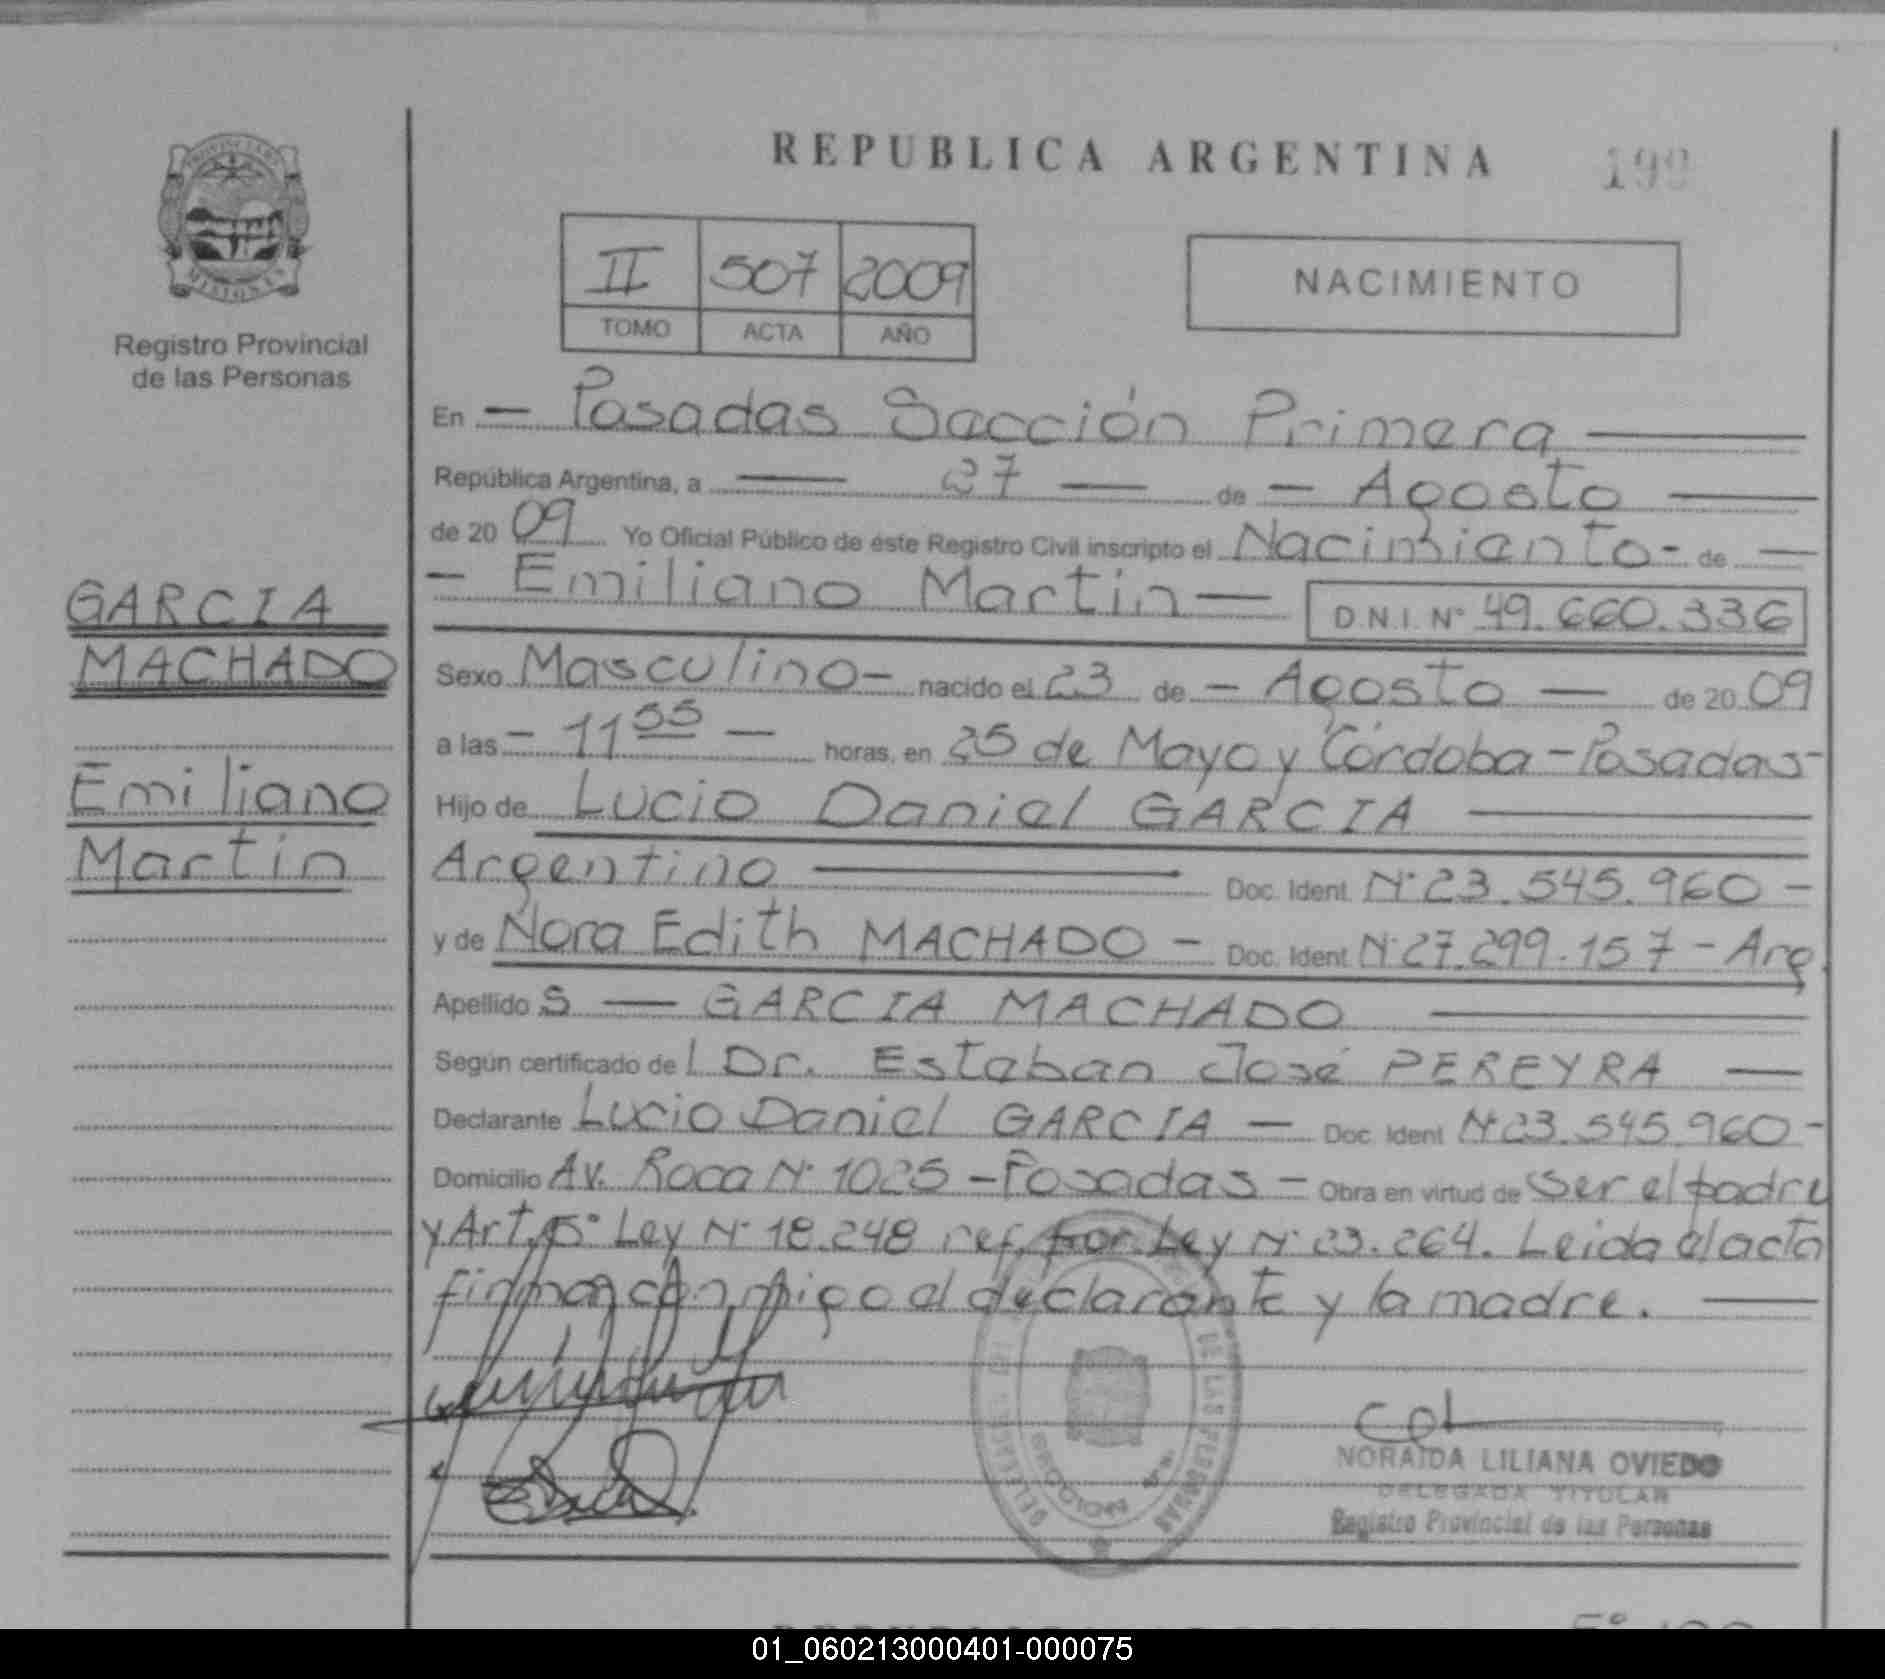 REPUBLICA ARGENTINA
199
PROVINCIA DE
MISIONES
Registro Provincial
de las Personas
II 507 2009
TOMO ACTA AÑO
NACIMIENTO
En — Posadas Sección Primera —
República Argentina, a — 27 — de — Agosto —
de 2009 Yo Oficial Público de éste Registro Civil inscripto el Nacimiento - de —
— Emiliano Martin — D.N.I. Nº 49.660.336
GARCIA
MACHADO
Emiliano
Martin
Sexo Masculino - nacido el 23 de — Agosto — de 2009
a las — 11 55 — horas, en 25 de Mayo y Córdoba - Posadas -
Hijo de Lucio Daniel GARCIA —
Argentino — Doc. Ident. Nº 23.545.960 -
y de Nora Edith MACHADO - Doc. Ident. Nº 27.299.157 - Arg.
Apellido S — GARCIA MACHADO —
Según certificado de l Dr. Esteban José PEREYRA —
Declarante Lucio Daniel GARCIA — Doc. Ident. Nº 23.545.960 -
Domicilio Av. Roca Nº 1025 - Posadas - Obra en virtud de ser el padre
y Art. 5º Ley Nº 18.248 ref. por Ley Nº 23.264. Leida el acta
firman conmigo el declarante y la madre. —
DE LAS PERSONAS
NORAIDA LILIANA OVIEDO
DELEGADA TITULAR
Registro Provincial de las Personas
01_060213000401-000075